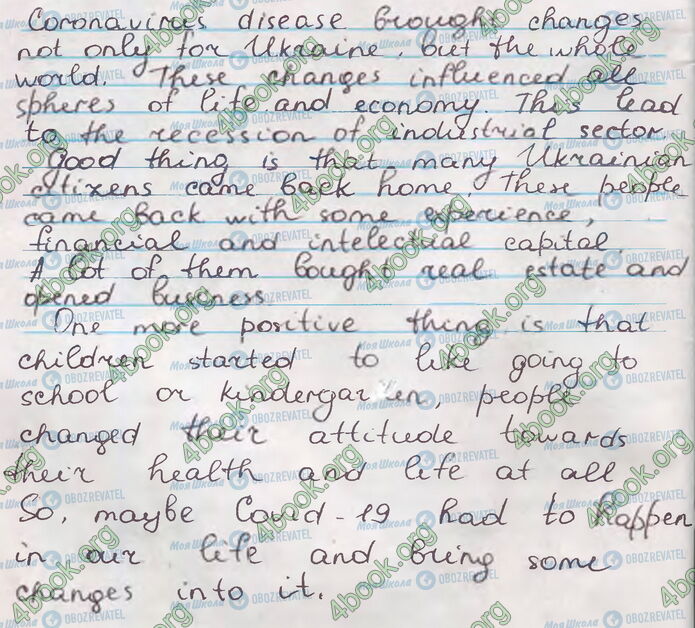 Coronavirus disease brought changes
not only for Ukraine, but the whole
world. These changes influenced all
spheres of life and economy. This lead
to the recession of industrial sector.
Good thing is that many Ukrainian
citizens came back home. These people
came back with some experience,
financial and intelectual capital.
A lot of them bought real estate and
opened business
One more positive thing is that
children started to like going to
school or kindergarten, people
changed their attitude towards
their health and life at all
So, maybe Covid-19 had to happen
in our life and bring some
changes into it.